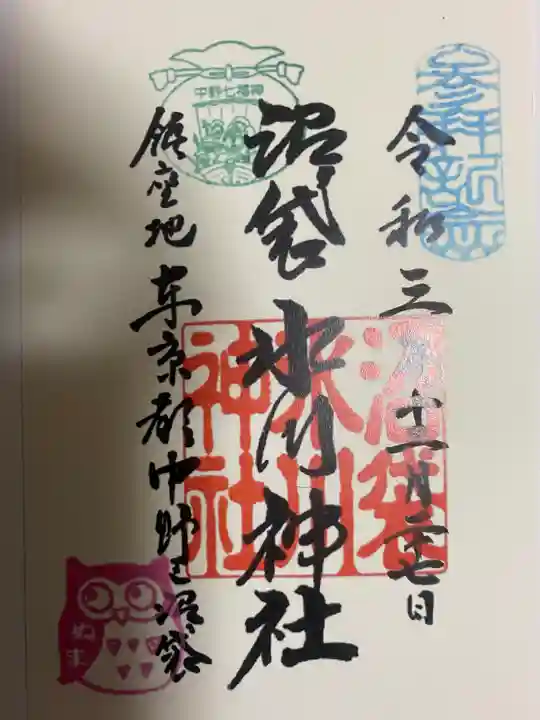 参拝記念
令和三年十一月二十七日
沼袋氷川神社
沼袋
氷川
神社
中野七福神
鎮座地 東京都中野区沼袋
ぬま